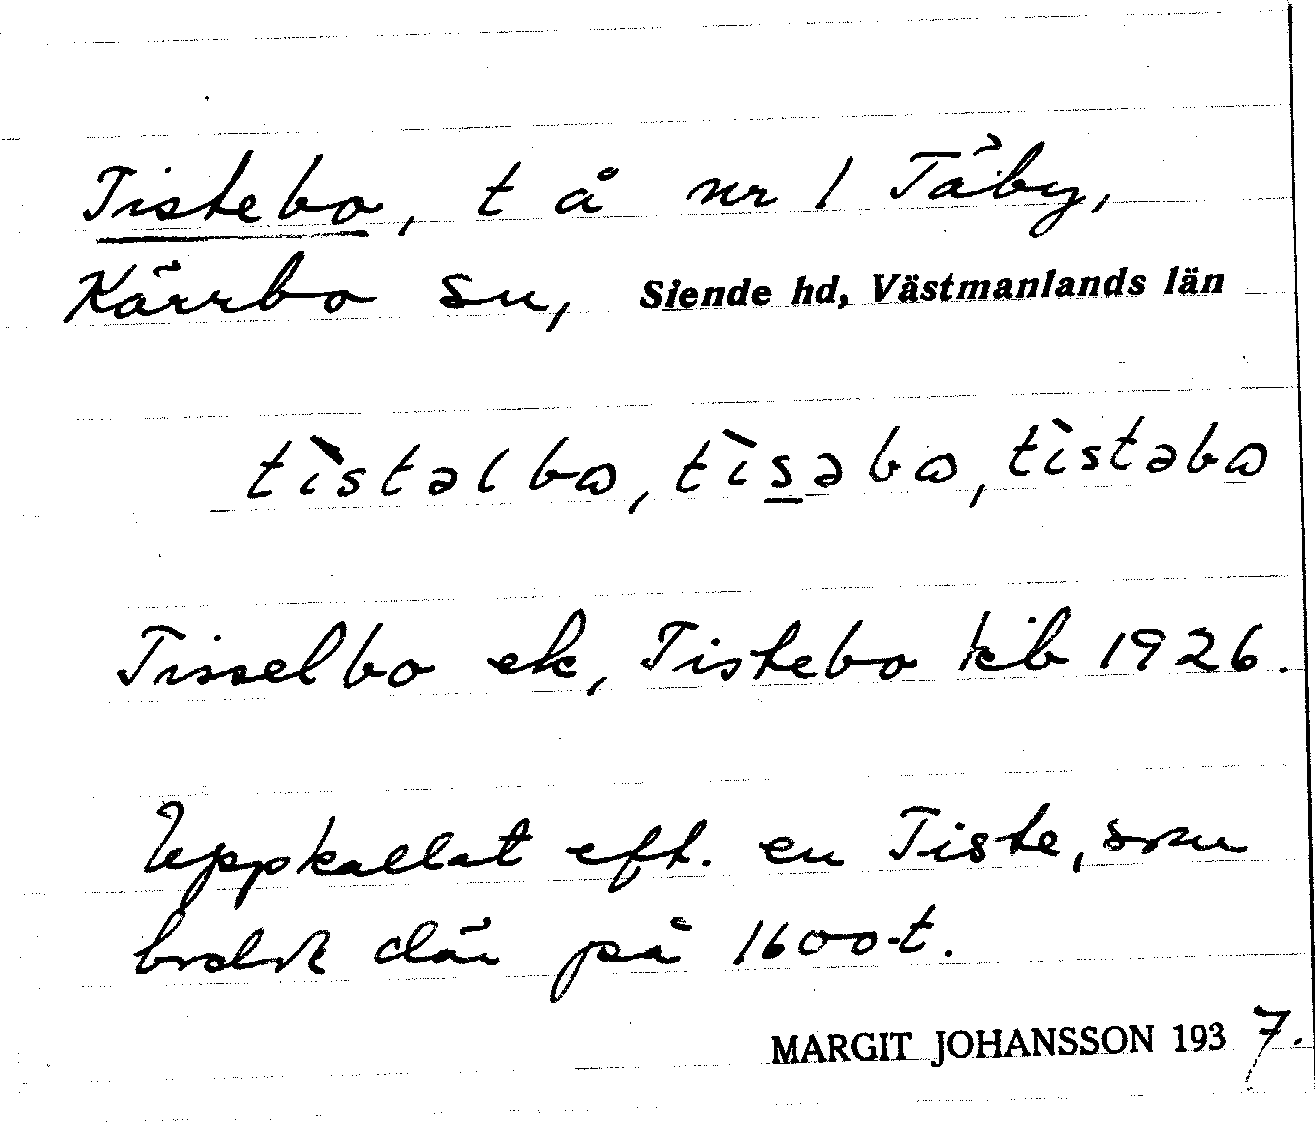 Tistebo, t å nr 1 Täby,
Kärrbo sn, Siende hd, Västmanlands län
tìstəlbω, tìs̲əbω, tìstəbω
Tisselbo ek, Tistebo kb 1926.
Uppkallat eft. en Tiste, som
bodde där på 1600-t.
MARGIT JOHANSSON 1937.